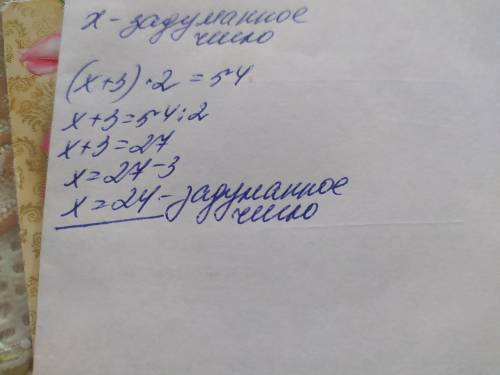 x - задуманное
число
(x+3)·2=54
x+3=54:2
x+3=27
x=27-3
x=24-задуманное
число